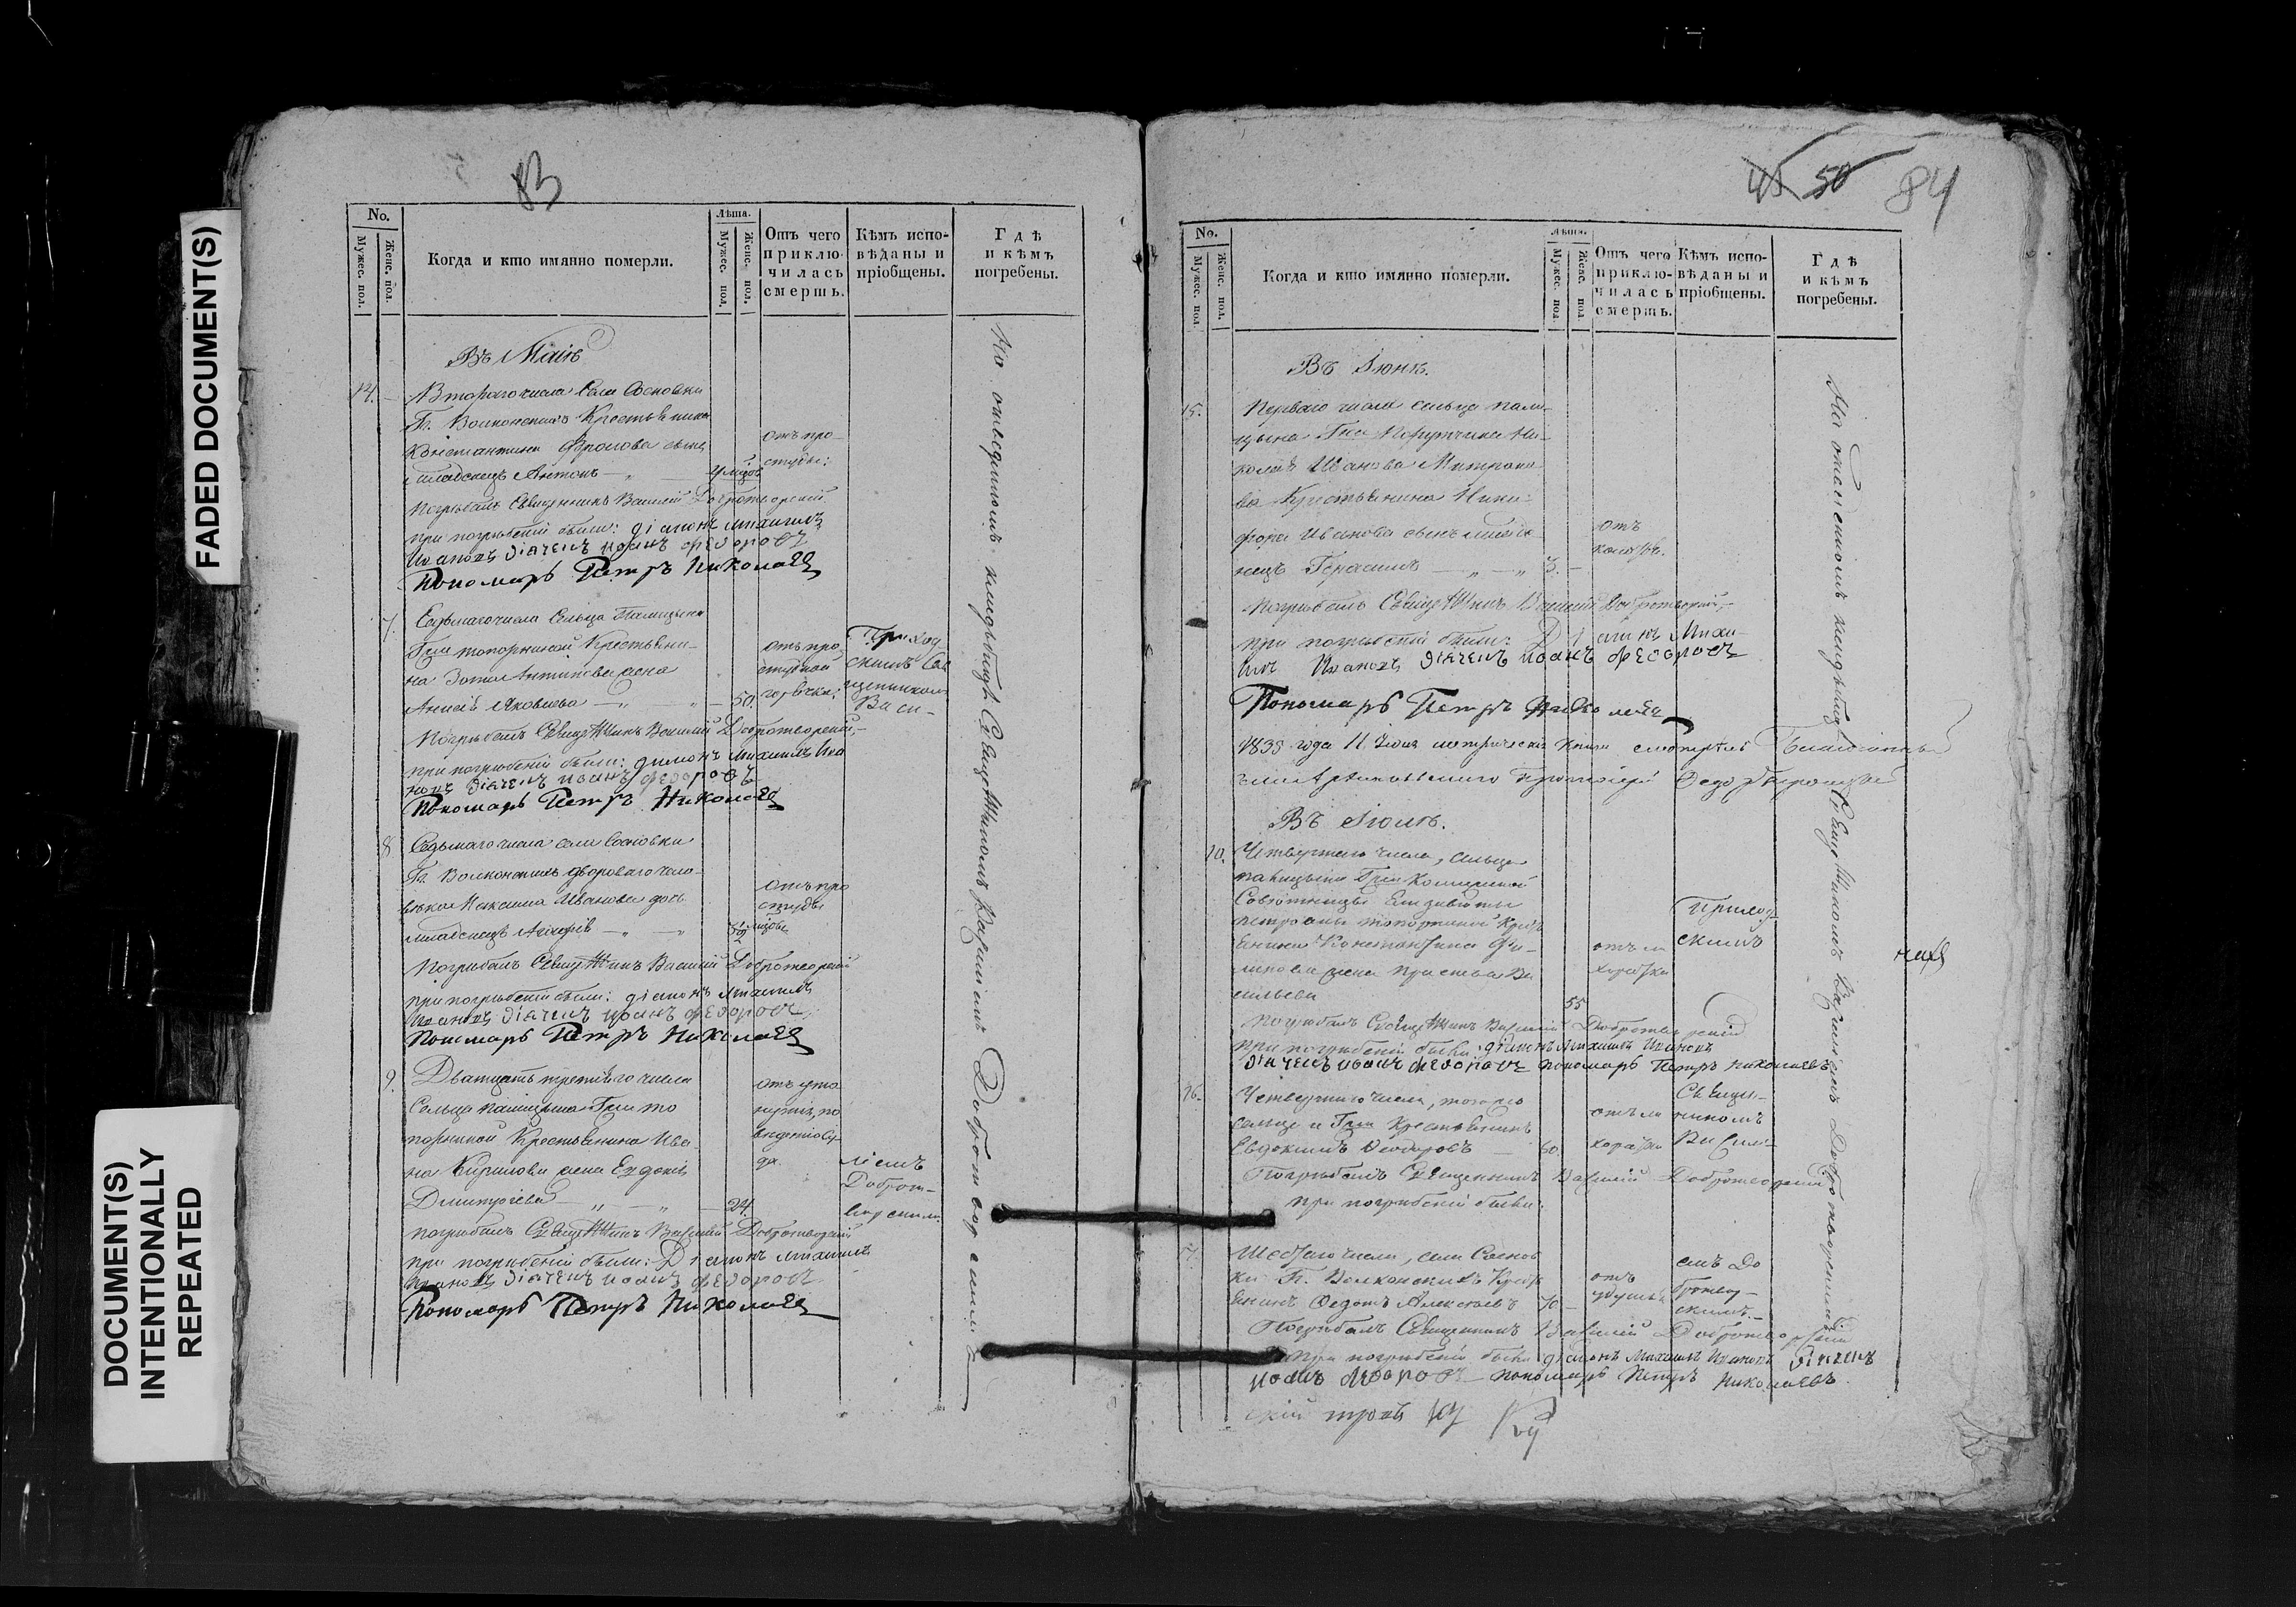 FADED DOCUMENT(S)
DOCUMENT(S)
INTENTIONALLY
REPEATED
83
No.
Мужес. пол.
Женс. пол.
Когда и кто имянно померли.
Лѣта.
Мужес. пол.
Женс. пол.
Отъ чего
приклю-
чилась
смерть.
Кѣмъ испо-
вѣданы и
пріобщены.
Гдѣ
и кѣмъ
погребены.
Въ Маіѣ
14.
Втораго числа села Сосновки
Г. Волконскихъ Крестьянина
Константина Фролова сынъ
младенецъ Антонъ
отъ про-
студы:
Погребалъ Священникъ Василій Добротворскій
при погребеніи были: діаконъ Михаилъ
Ивановъ діячекъ Іоанъ Федоровъ
Пономарь Петръ Николаевъ
7.
Седьмаго числа Сельца Палицына
Гжи топорниной Крестьяни-
на Антипова жена
Яковлева 50.
отъ про
студной
горячки:
Приход
скимъ Свя
щенникомъ
Васи-
Погребалъ Священникъ Василій Добротворскій,
при погребеніи были: діаконъ Михаилъ Ива
новъ діячекъ Іоанъ Федоровъ
Пономарь Петръ Николаевъ
8
Седьмаго числа села Сосновки
Г. Волконскихъ двороваго чело-
вѣка Максима Иванова дочь
младенецъ
отъ про
студы
Погребалъ Священникъ Василій Добротворскій
при погребеніи были: діаконъ Михаилъ
Ивановъ діячекъ Іоанъ Федоровъ
Пономарь Петръ Николаевъ
9.
Дватцать третьяго числа
Сельца палицына Гжи то
порниной Крестьянина Ива
на Кирилова жена
Дмитріева 24.
ліемъ
Добро-
ворскимъ
погребалъ Священникъ Василій Добротворскій
при погребеніи были: Діаконъ Михаилъ
Ивановъ діячекъ Іоанъ Федоровъ
Пономарь Петръ Николаевъ
На отведенномъ кладбищѣ Священникомъ Василіемъ Добротворскимъ
45 50 84
No.
Мужес. пол.
Женс. пол.
Когда и кто имянно померли.
Лѣта.
Мужес. пол.
Женс. пол.
Отъ чего
приклю-
чилась
смерть.
Кѣмъ испо-
вѣданы и
пріобщены.
Гдѣ
и кѣмъ
погребены.
Въ Іюнѣ.
15.
Перваго числа сельца пали-
цына Гна Порутчика Ни-
колая Иванова Митрофа
ва Крестьянина Ники-
фора Иванова сынъ младе
нецъ Герасимъ 3.
отъ
Погребалъ Священникъ Василій Добротворскій,
при погребеніи были: Діаконъ Миха-
илъ Ивановъ діячекъ Іоанъ Федоровъ
Пономарь Петръ Николаевъ
1838 года 11 Іюня метрическія книги смотрѣлъ Благочинный
Въ Іюлѣ.
10.
Четвертаго числа, сельца
палицына Гжи Колежской
Совѣтницы Елизаветы
петровны топорниной Крес
янина Константина Фи-
липова жена Ва
сильева 55
отъ ли
хорадки
Приход
скимъ
Погребалъ Священникъ Василій Добротворскій
при погребеніи были: діаконъ Михаилъ Ивановъ
діячекъ Іоанъ Федоровъ пономарь Петръ Николаевъ
16.
Четвертаго числа, тогожъ
сельца и Гжи Крестьянинъ
Евдокимъ Феодоровъ 60
отъ ли
хорадки
Священ-
никомъ
Васили-
Погребалъ Священникъ Василій Добротворскій
при погребеніи были:
17.
Шестаго числа, села Соснов
ки Г. Волконскихъ Крест
янинъ Федотъ Алексѣевъ 70
отъ
удушья
емъ До
бротвор-
скимъ.
Погребалъ Священникъ Василій Добротворскій
при погребеніи были діаконъ Михаилъ Ивановъ діячекъ
Іоанъ Федоровъ пономарь Петръ Николаевъ.
На отведенномъ кладбищѣ Священникомъ Василіемъ Добротворскимъ